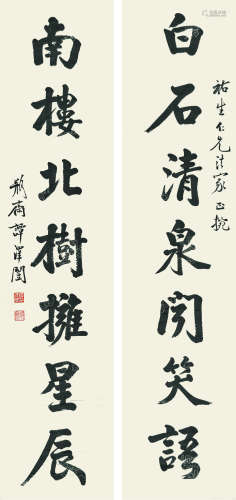 祐生仁先法家正挽
白石清泉闻笑語
南樓北樹擁星辰
瓶齋譚澤闓